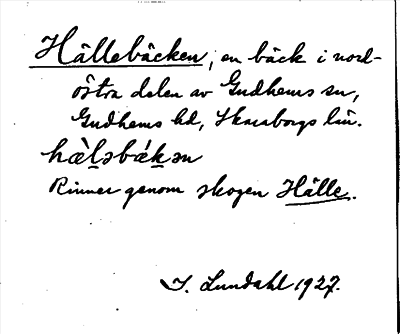 Hällebäcken, en bäck i nord-
östra delen av Gudhems sn,
Gudhems hd, Skaraborgs län.
hæ̀l̠əbǽk̠ən
Rinner genom skogen Hälle.
I. Lundahl 1927.